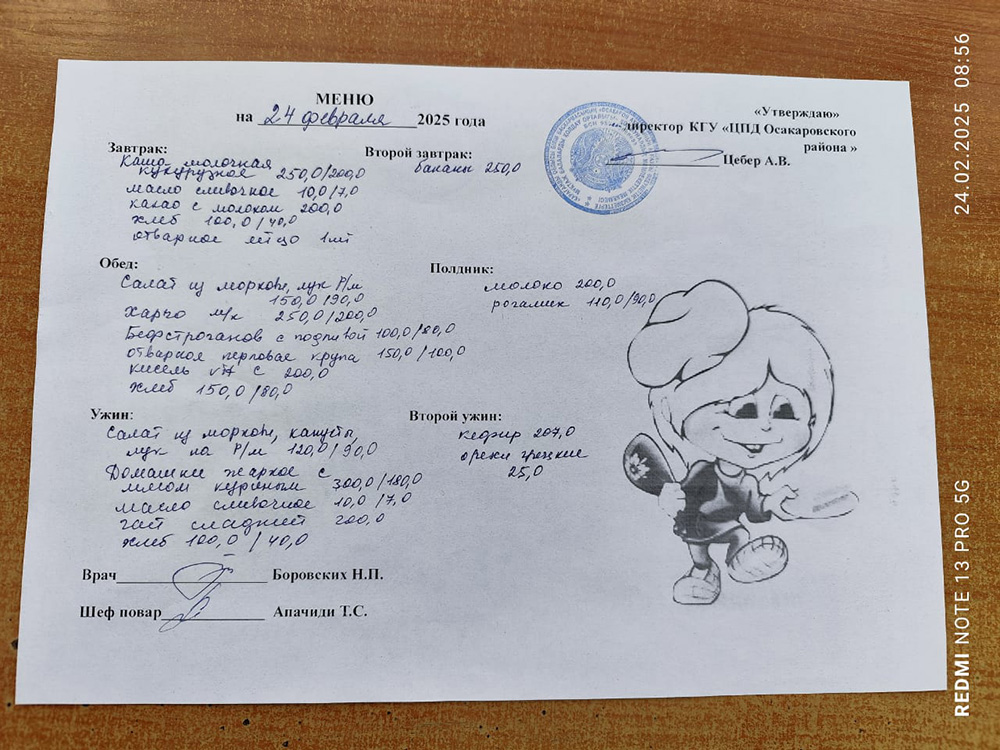 МЕНЮ
на 24 февраля 2025 года
«Утверждаю»
директор КГУ «ЦПД Осакаровского
района »
Цебер А.В.
Завтрак:
Каша молочная
кукурузное 250,0/200,0
масло сливочное 10,0/7,0
какао с молоком 200,0
хлеб 100,0/40,0
отварное яйцо 1шт
Второй завтрак:
бананы 250,0
Обед:
Салат из моркови, лук Р/м
150,0/90,0
Харчо м/к 250,0/200,0
Бефстроганов с подливой 100,0/80,0
отварное перловое крупа 150,0/100,0
кисель vit C 200,0
хлеб 150,0/80,0
Полдник:
молоко 200,0
рогалик 110,0/90,0
Ужин:
Салат из моркови, капусты,
лук на Р/м 120,0/90,0
Домашни жаркое с
мясом куриным 300,0/180,0
масло сливочное 10,0/7,0
чай сладкий 200,0
хлеб 100,0/40,0
Второй ужин:
кефир 207,0
орехи грецкие
25,0
Врач Боровских Н.П.
Шеф повар Апачиди Т.С.
24.02.2025 08:56
REDMI NOTE 13 PRO 5G